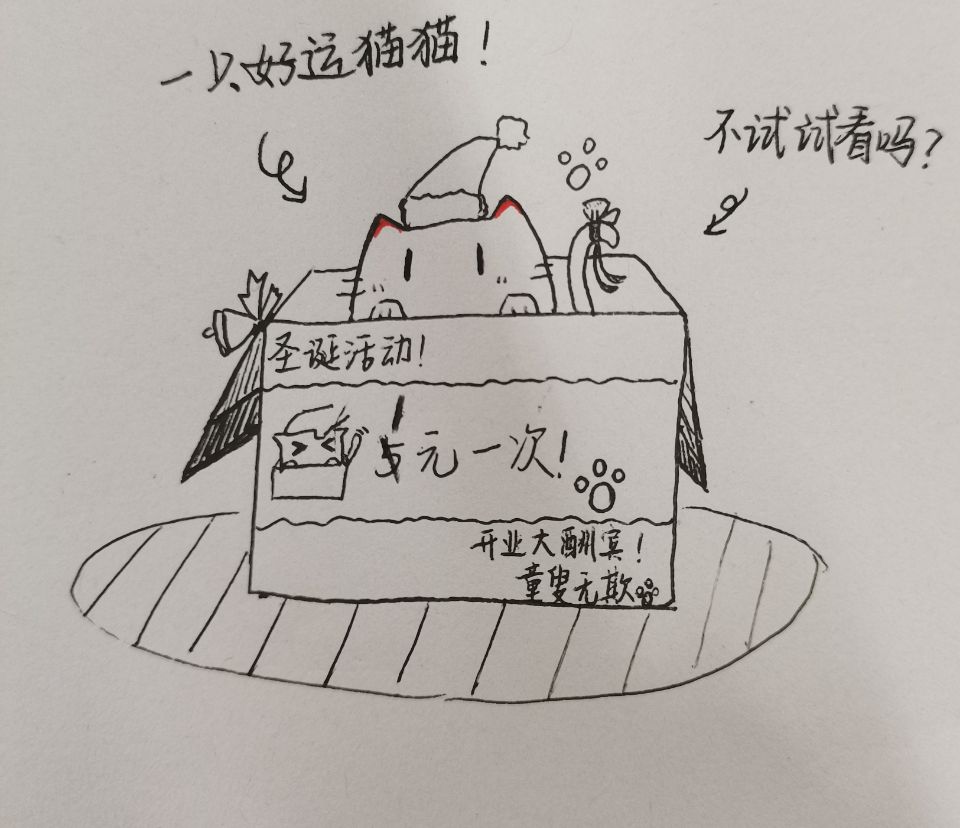 一只好运猫猫!
不试试看吗?
圣诞活动!
5元一次!
开业大酬宾!
童叟无欺